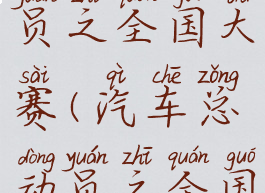 员之全国大
sài qì chē zǒng
赛(汽车总
dòng yuán zhī quán guó
动员之全国